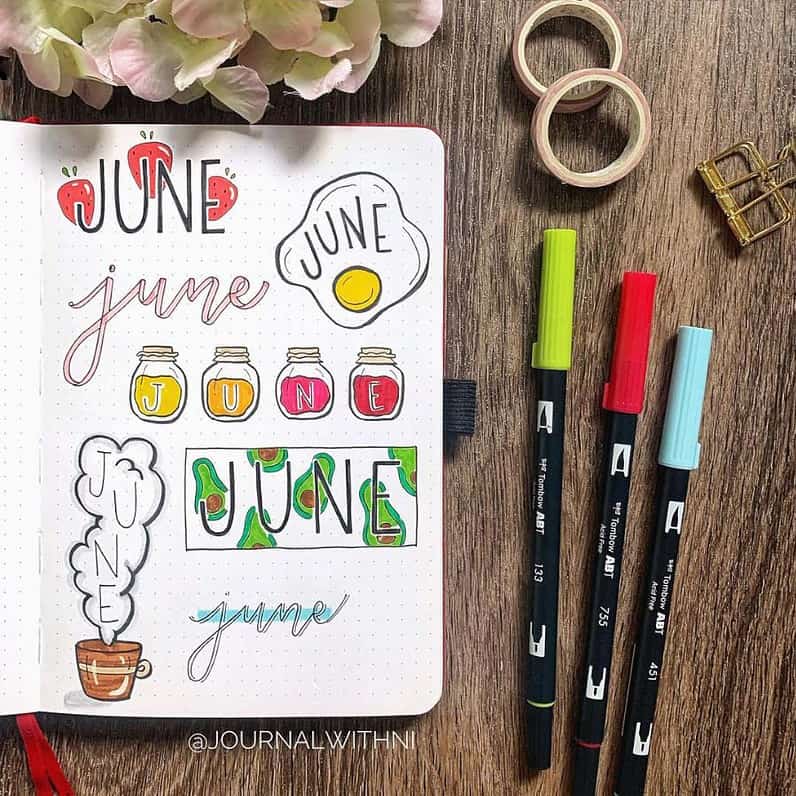 JUNE
JUNE
june
JUNE
JUNE
JUNE
june
Tombow ABT
133
Tombow ABT
Acid Free
755
Tombow ABT
Acid Free
451
@JOURNALWITHNI